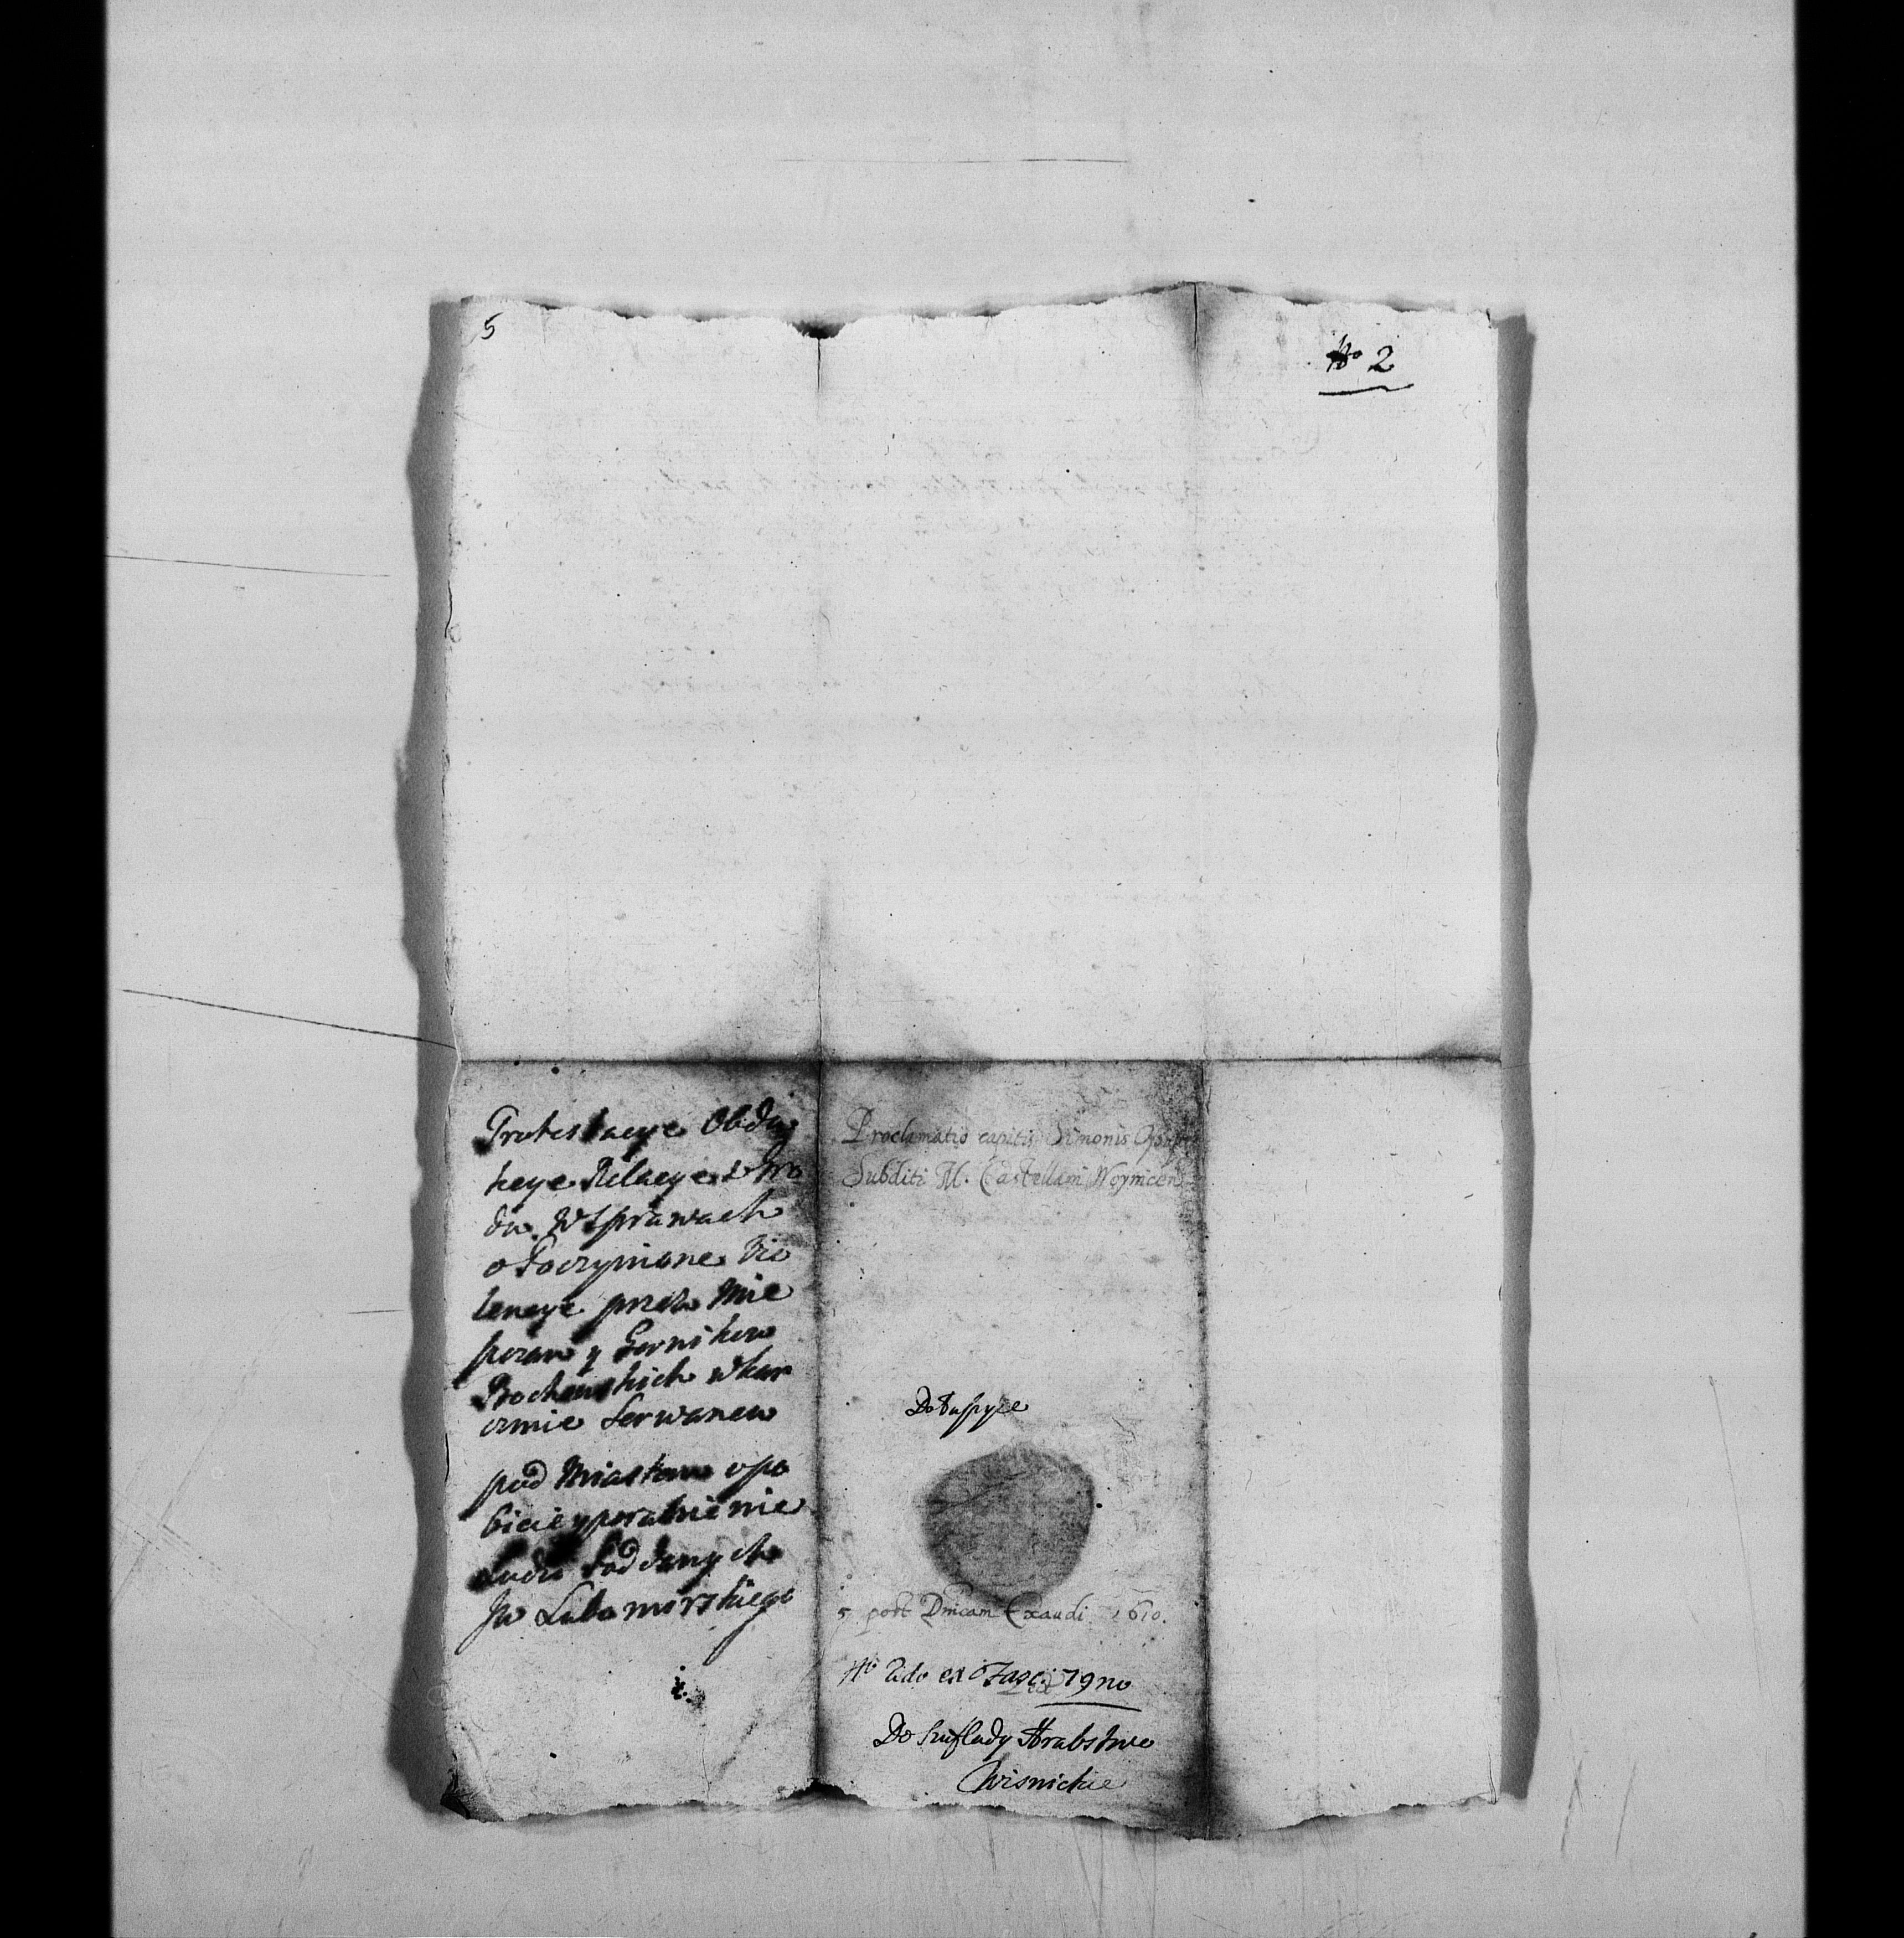 5
No 2
Protestacye Obdu
kcye Relacye z Gro
du w Sprawach
o Poczynione Vio
lencye przez Mie
szczan y Gornikow
Bochenskich w kar
czmie Serwanew
pod Miastem o po
bicie y poranienie
Ludzi Poddanych
Jw Lubomirskiego
Proclamatio capitis Simonis
Subditi M. Castellani Woynicen
Do Łupyce
5 post Dnicam Exaudi 1610.
No 2do ex Fasc: 79no
Do Szuflady Hrabstwo
Wisnickie